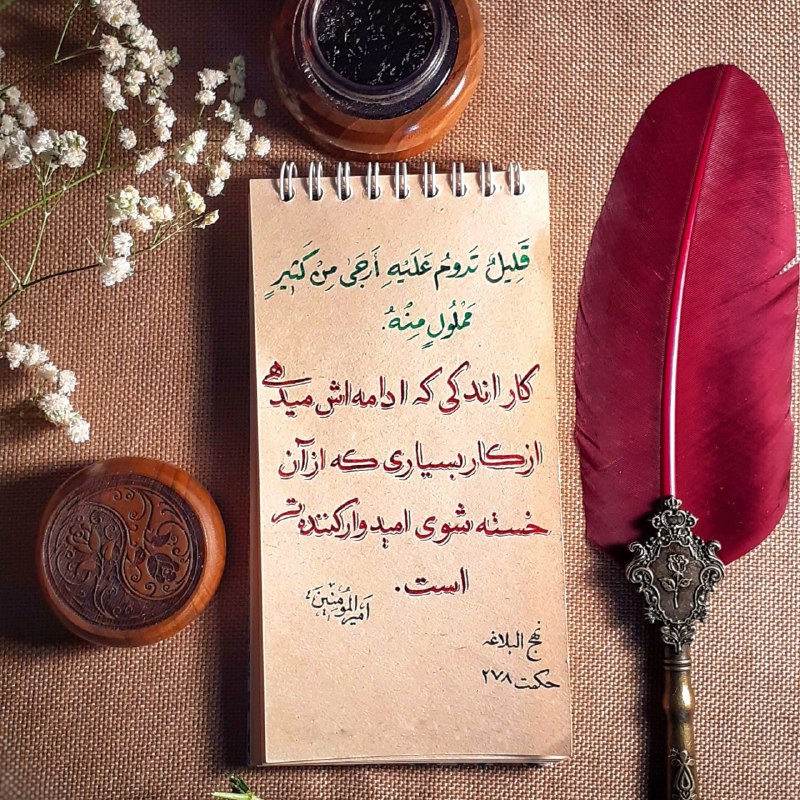 قَلِيلٌ تَدومُ عَلَيْهِ أَرجَىٰ مِنْ كَثِيرٍ
مَمْلُولٍ مِنْهُ.
کار اندکی که ادامه‌اش میدهی
از کار بسیاری که از آن
خسته شوی امیدوارکننده‌تر
است.
امیرالمُؤمِنینَ
نهج البلاغه
حکمت ۲۷۸